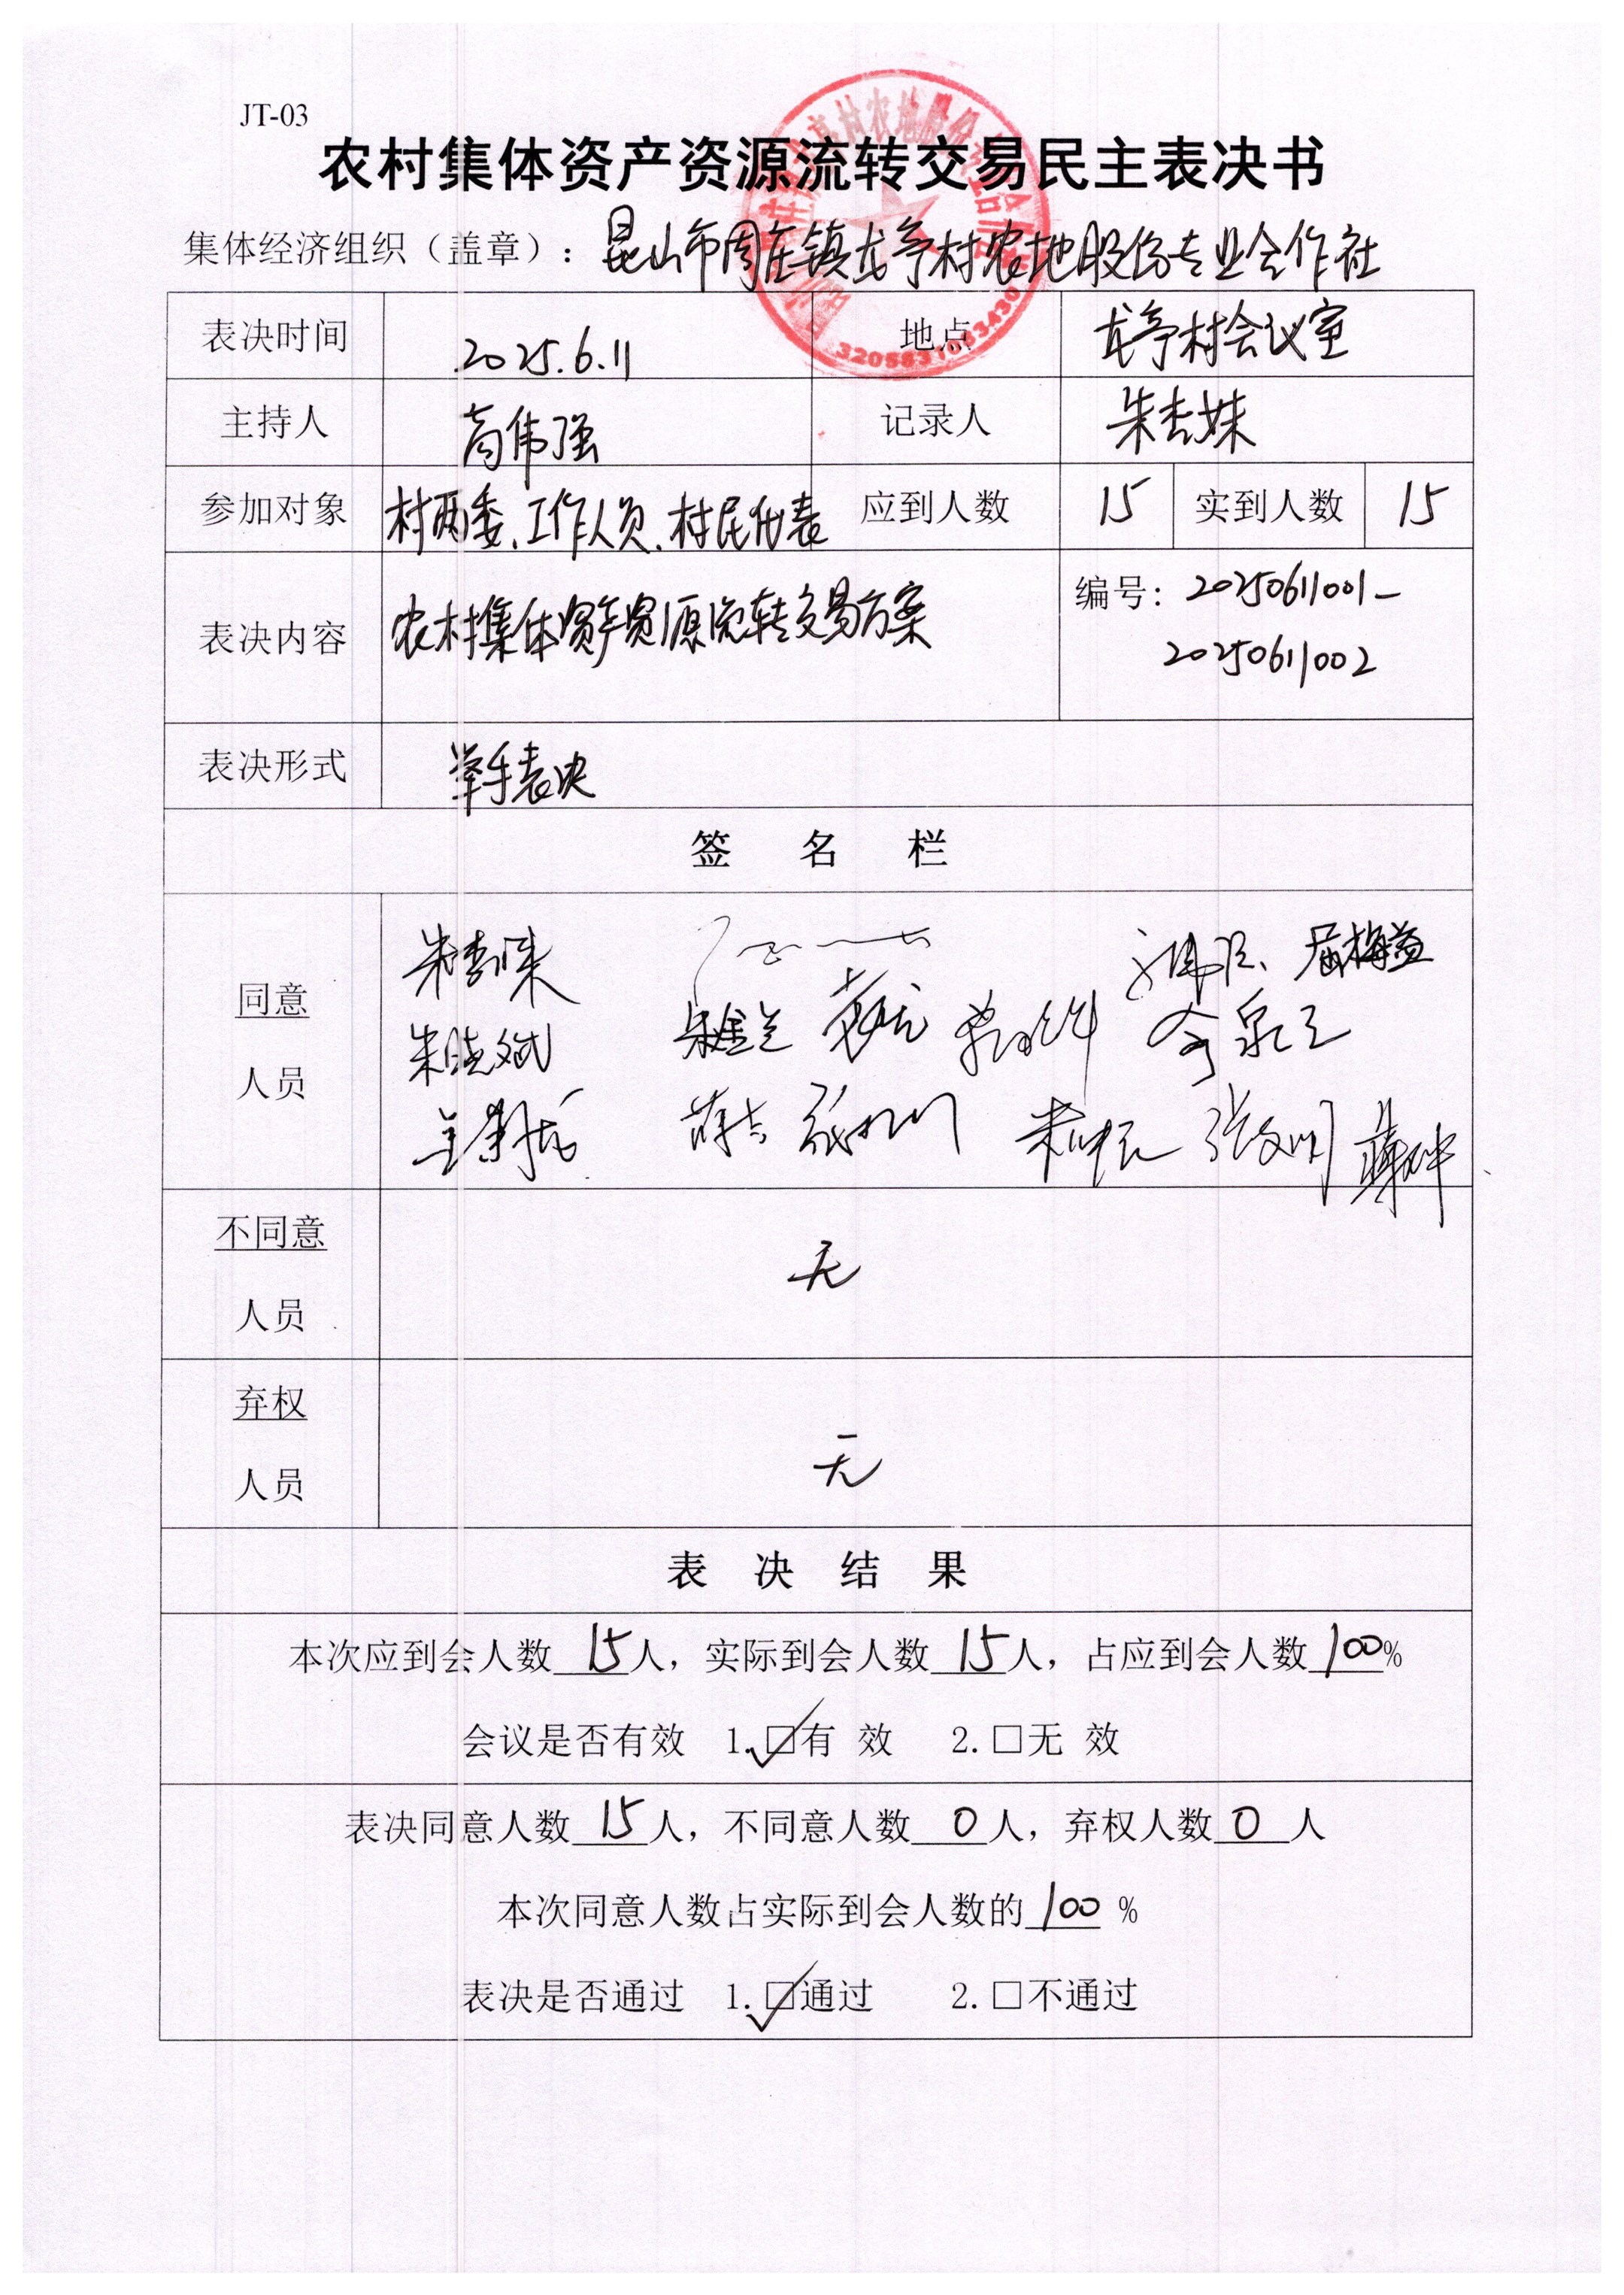 JT-03
农村集体资产资源流转交易民主表决书
集体经济组织（盖章）：昆山市周庄镇龙亭村农地股份专业合作社
表决时间 2025.6.11 地点 龙亭村会议室
主持人 高伟强 记录人 朱杏妹
参加对象 村两委、工作人员、村民代表 应到人数 15 实到人数 15
表决内容 农村集体资产资源流转交易方案 编号：20250611001-
20250611002
表决形式 举手表决
签 名 栏
同意
人员
朱晓斌 朱金兰
张文明
不同意
人员
无
弃权
人员
无
表 决 结 果
本次应到会人数 15 人，实际到会人数 15 人，占应到会人数 100 %
会议是否有效 1.☑有 效 2.□无 效
表决同意人数 15 人，不同意人数 0 人，弃权人数 0 人
本次同意人数占实际到会人数的 100 %
表决是否通过 1.☑通过 2.□不通过